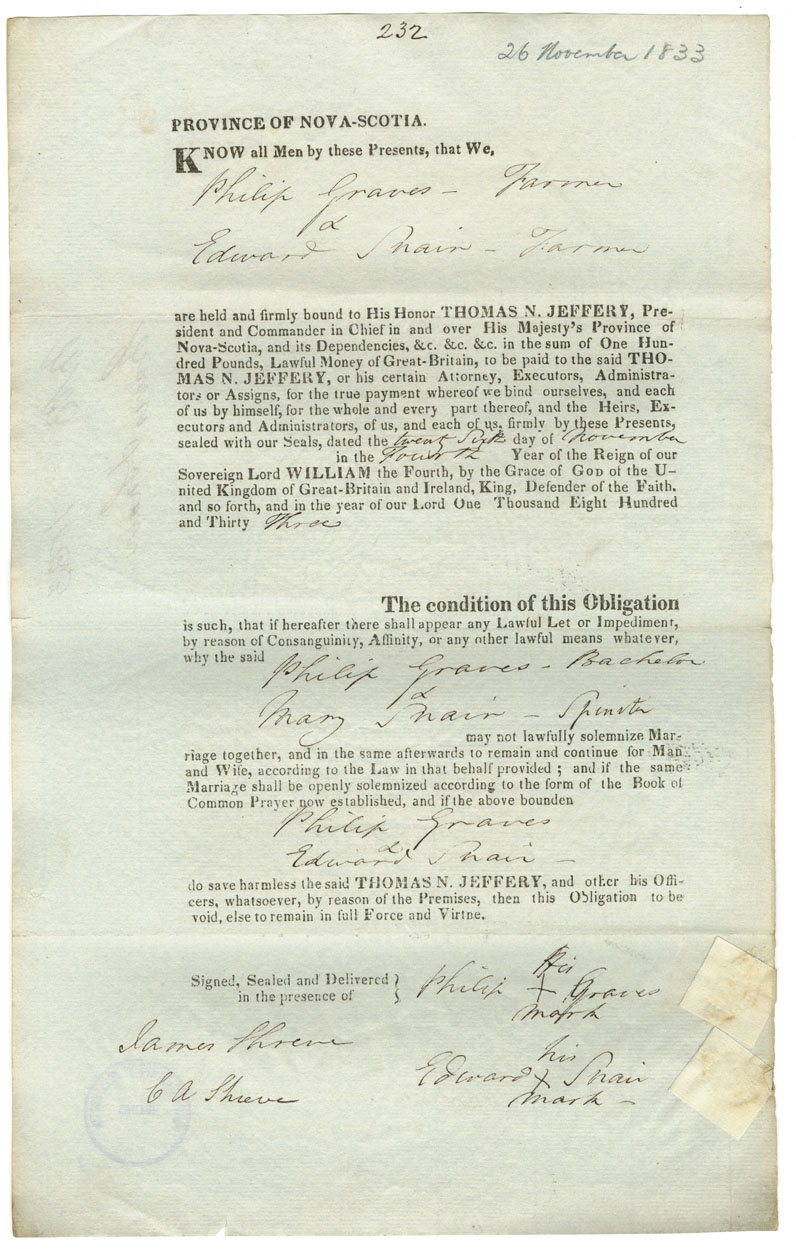 232
26 November 1833
PROVINCE OF NOVA-SCOTIA.
KNOW all Men by these Presents, that We,
Philip Graves - Farmer
&
Edward Snair - Farmer
are held and firmly bound to His Honor THOMAS N. JEFFERY, Pre-
sident and Commander in Chief in and over His Majesty's Province of
Nova-Scotia, and its Dependencies, &c. &c. &c. in the sum of One Hun-
dred Pounds, Lawful Money of Great-Britain, to be paid to the said THO-
MAS N. JEFFERY, or his certain Attorney, Executors, Administra-
tors or Assigns, for the true payment whereof we bind ourselves, and each
of us by himself, for the whole and every part thereof, and the Heirs, Ex-
ecutors and Administrators, of us, and each of us, firmly by these Presents,
sealed with our Seals, dated the twenty Sixth day of November
in the Fourth Year of the Reign of our
Sovereign Lord WILLIAM the Fourth, by the Grace of GOD of the U-
nited Kingdom of Great-Britain and Ireland, King, Defender of the Faith,
and so forth, and in the year of our Lord One Thousand Eight Hundred
and Thirty Three
The condition of this Obligation
is such, that if hereafter there shall appear any Lawful Let or Impediment,
by reason of Consanguinity, Affinity, or any other lawful means whatever,
why the said
Philip Graves - Bachelor
&
Mary Snair - Spinster
may not lawfully solemnize Mar-
riage together, and in the same afterwards to remain and continue for Man
and Wife, according to the Law in that behalf provided ; and if the same
Marriage shall be openly solemnized according to the form of the Book of
Common Prayer now established, and if the above bounden
Philip Graves
&
Edward Snair -
do save harmless the said THOMAS N. JEFFERY, and other his Offi-
cers, whatsoever, by reason of the Premises, then this Obligation to be
void, else to remain in full Force and Virtne.
Signed, Sealed and Delivered }
in the presence of }
His
Philip + Graves
mark
James Shreve
his
Edward X Snair
mark -
C A Shreve